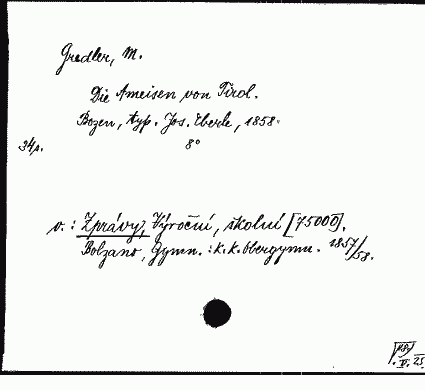 Gredler, M.
Die Ameisen von Tirol.
Bozen, typ. Jos. Eberle, 1858.
34 p.
8°
v.: Zprávy, Výroční, školní [75000].
Bolzano, Gymn.: K.k. Obergymn. 1857/58.